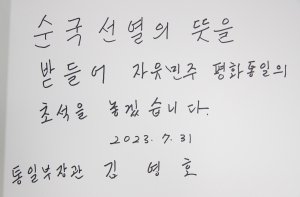 순국선열의 뜻을
받들어 자유민주 평화통일의
초석을 놓겠습니다.
2023. 7. 31
통일부장관 김 영 호